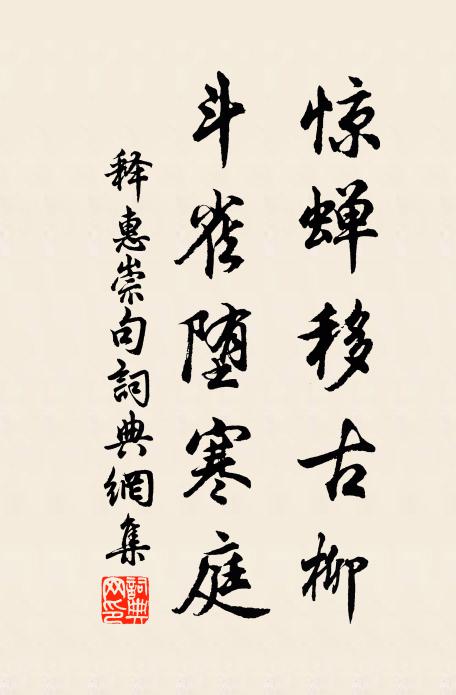 惊蝉移古柳
斗雀堕寒庭
释惠崇句詞典網集
詞典网印